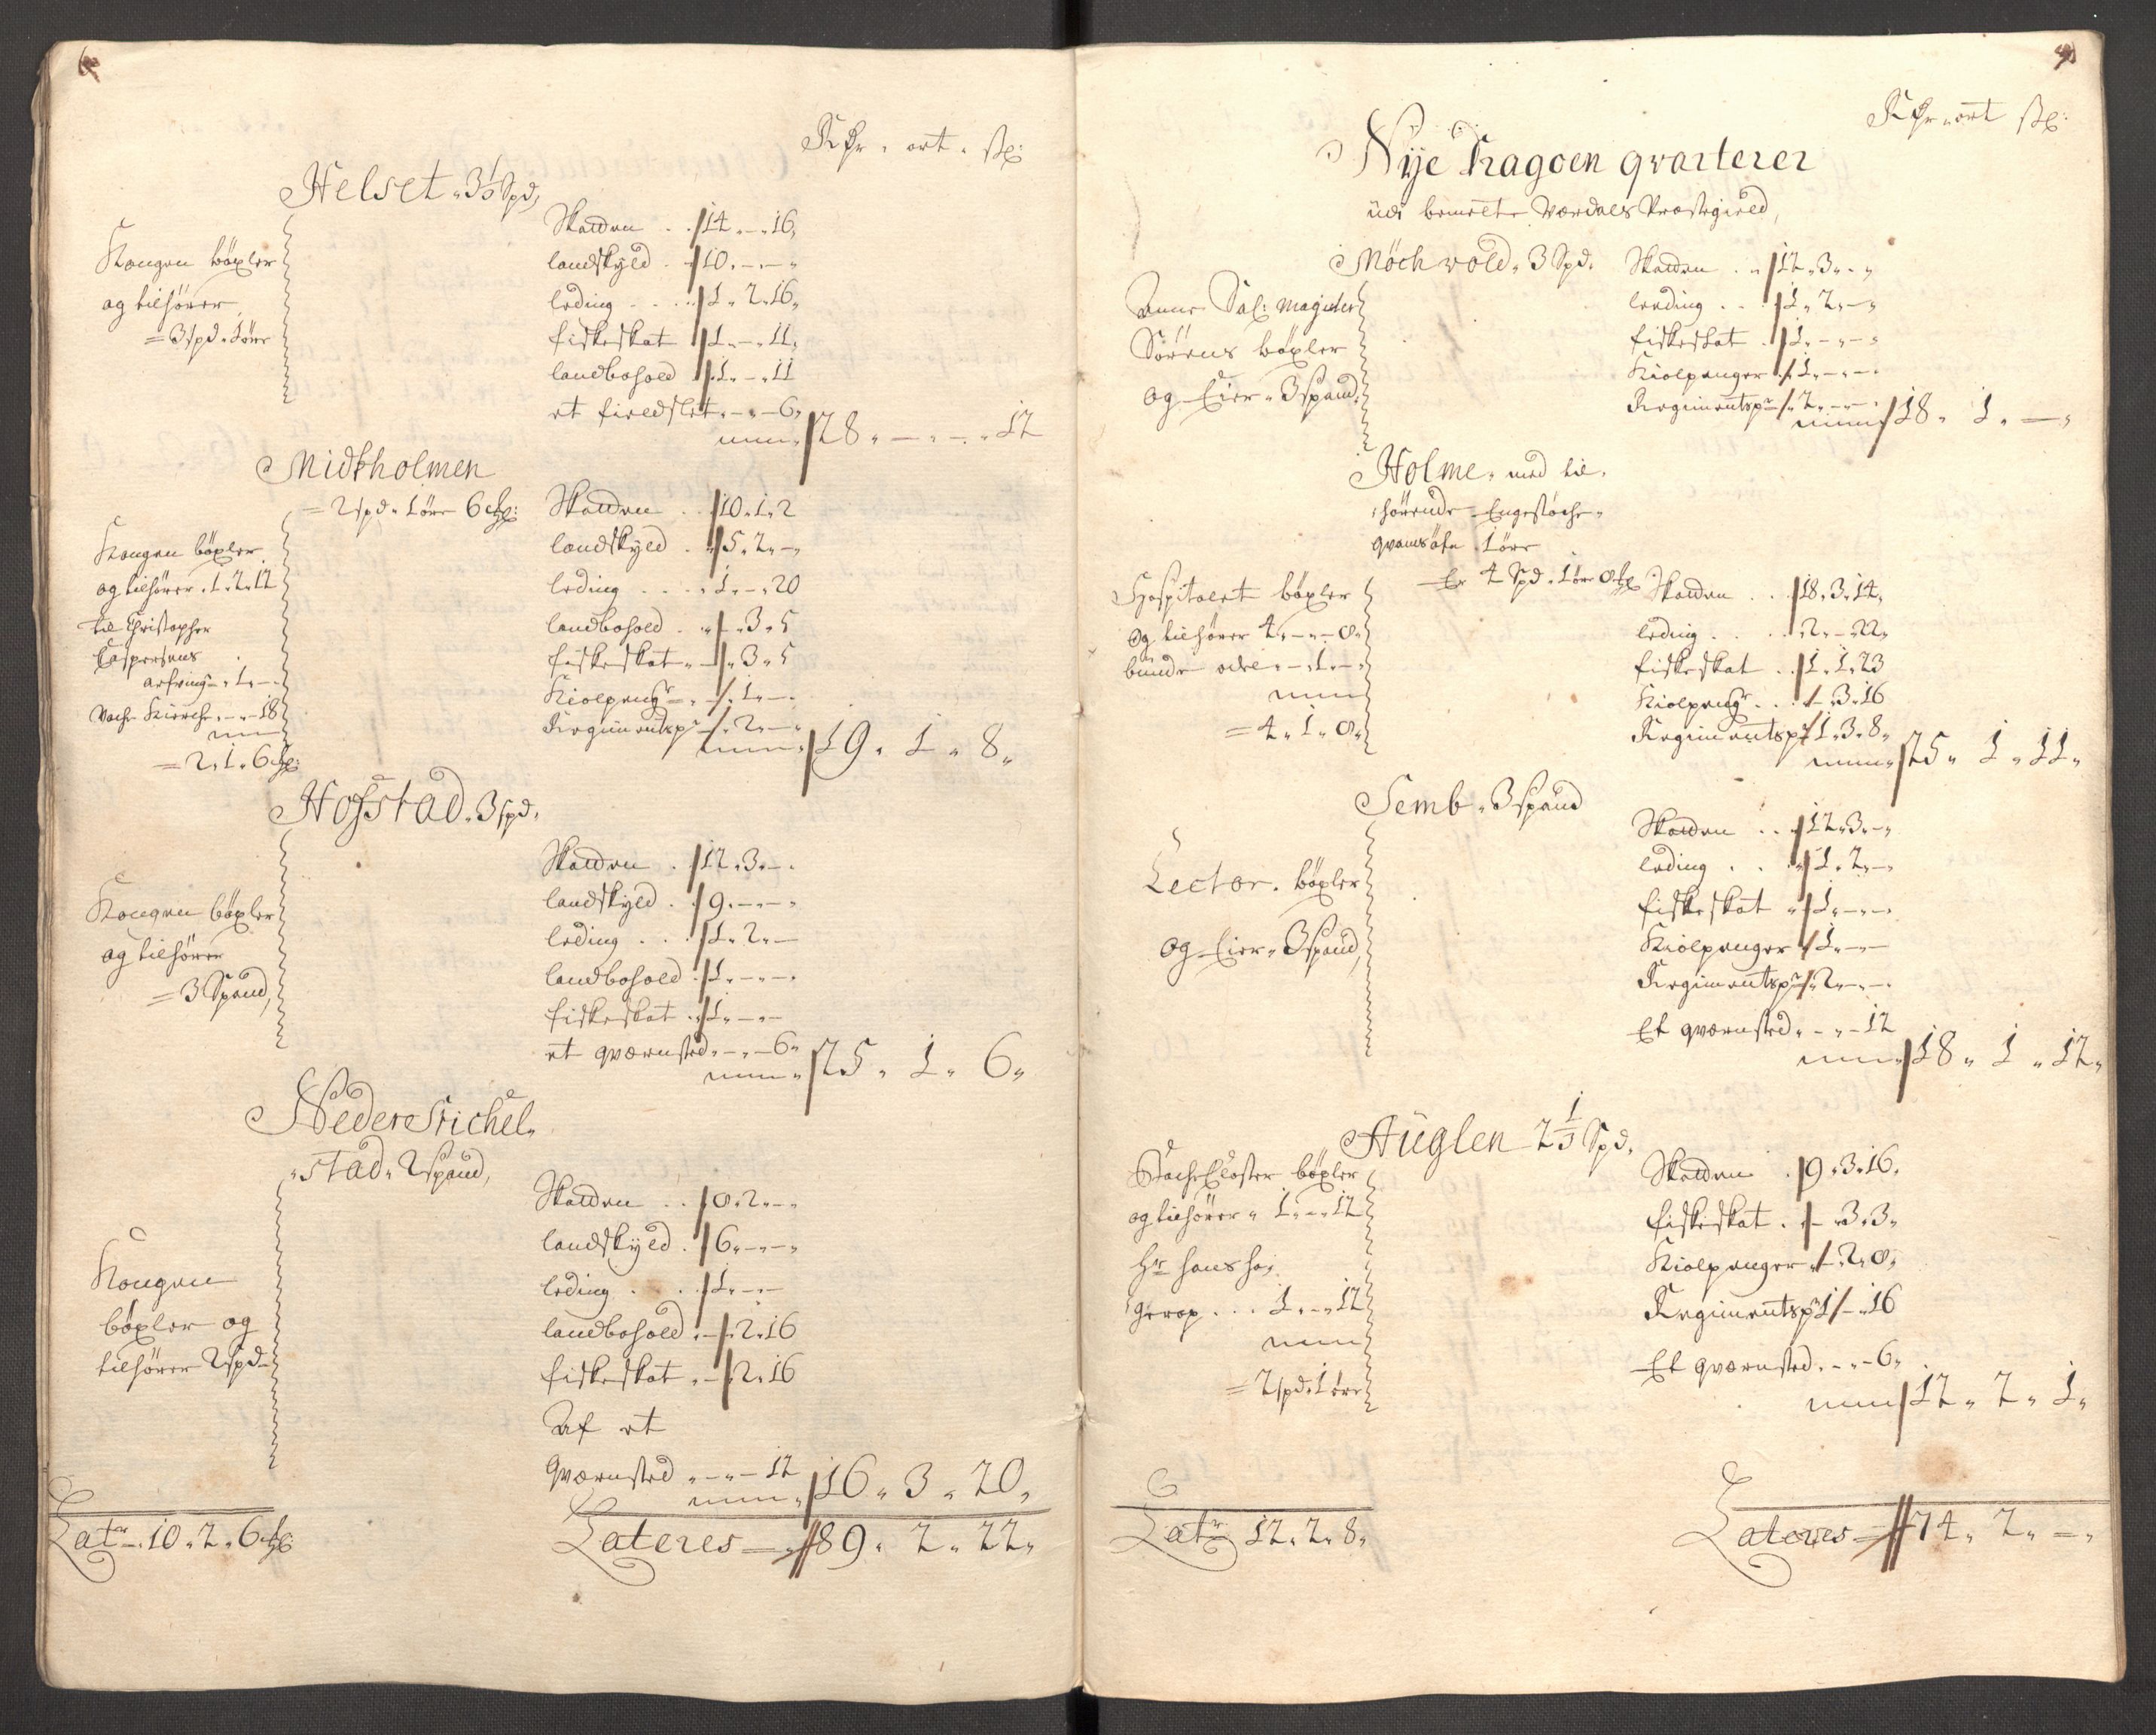 Rdr . ort . sk:
Helset . 3⅓ Spd,
Kongen böxler
og tilhörer
= 3 spd . 1 öre
Skatten . . 14 . - . 16,
landskyld . 10 . - . -
leding . . . 1 . 2 . 16,
fiskeskat 1 . - . 11,
landbohold 1 . - . 11
et fieldslet . - . - 6,
28 . - . 12
Midtholmen
= 2 spd . 1 öre 6 mk:
Kongen böxler
og tilhörer . 1 . 2 . 12
til Christopher
Caspersens
arfving . 1 . -
Kirche . - . 18
= 2 . 1 . 6 mk:
Skatten . . 10 . 1 . 2
landskyld . 5 . 2 . -
leding . . . 1 . - . 20
landbohold . - . 3 . 5
fiskeskat . - . 3 . 5
Kiolpeng . - . 1 . -
Regimentsp . - . 2 . -
19 . 1 . 8,
Hofstad . 3 spd,
Kongen böxler
og tilhörer
= 3 Spand,
Skatten . 12 . 3 . -
landskyld . 9 . - . -
leding . . . 1 . 2 . -
landbohold . 1 . - . -
fiskeskat . 1 . - . -
et qværnsted . - . - 6,
25 . 1 . 6,
Nedere Stichel,
stad . 2 spand,
Kongen
böxler og
tilhörer 2 spd
Skatten . . 8 . 2 . -
landskyld . 6 . - . -
leding . . . 1 . - . -
landbohold . - . 2 . 16
fiskeskat . - . 2 . 16
Af et
qværnsted . - . - 12
16 . 3 . 20,
Lat . 10 . 2 . 6 mk:
Lateres = 89 . 2 . 22,
Rdr . ort sk:
Nye Dragoen qvarterer
udi bemelte Værdals Præstegield,
Möchvold . 3 Spd.
Anne Sal: Magister
Sörens böxler
og Eier . 3 spand,
Skatten . . 12 . 3 . -
leeding . . 1 . 2 . -
fiskeskat . 1 . - . -
Kiolpenger . 1 . - . -
Regimentsp . 2 . - . -
18 . 1 . -
Holme, med til,
hörende Engestöche,
1 öre
Er 4 Spd . 1 öre 8 mk
Hospitalet böxler
og tilhörer 4 . - . 8,
bunde odel . - . 1 . -
= 4 . 1 . 8,
Skatten . . 18 . 3 . 14,
leding . . . 2 . - . 22,
fiskeskat . 1 . 1 . 23
Kiolpeng . . - . 3 . 16
Regimentsp 1 . 3 . 8,
25 . 1 . 11,
Semb . 3 spand
Lector . böxler
og Eier . 3 spand,
Skatten . . 12 . 3 . -
leding . . . 1 . 2 . -
fiskeskat . 1 . - . -
Kiolpenger . 1 . - . -
Regimentsp . 2 . - . -
Et qværnsted . - . - 12
18 . 1 . 12,
Auglen 2⅓ Spd,
Bache Closter böxler
og tilhörer . 1 . - . 12
Hr Hans Ha,
gerop . . . 1 . - . 12
= 2 spd . 1 öre
Skatten . 9 . 3 . 16,
fiskeskat . - . 3 . 3,
Kiolpenger . - . 2 . 8,
Regimentsp 1 . - . 16
Et qværnsted . - . - 6,
12 . 2 . 1,
Lat 12 . 2 . 8,
Lateres = 74 . 2 . -